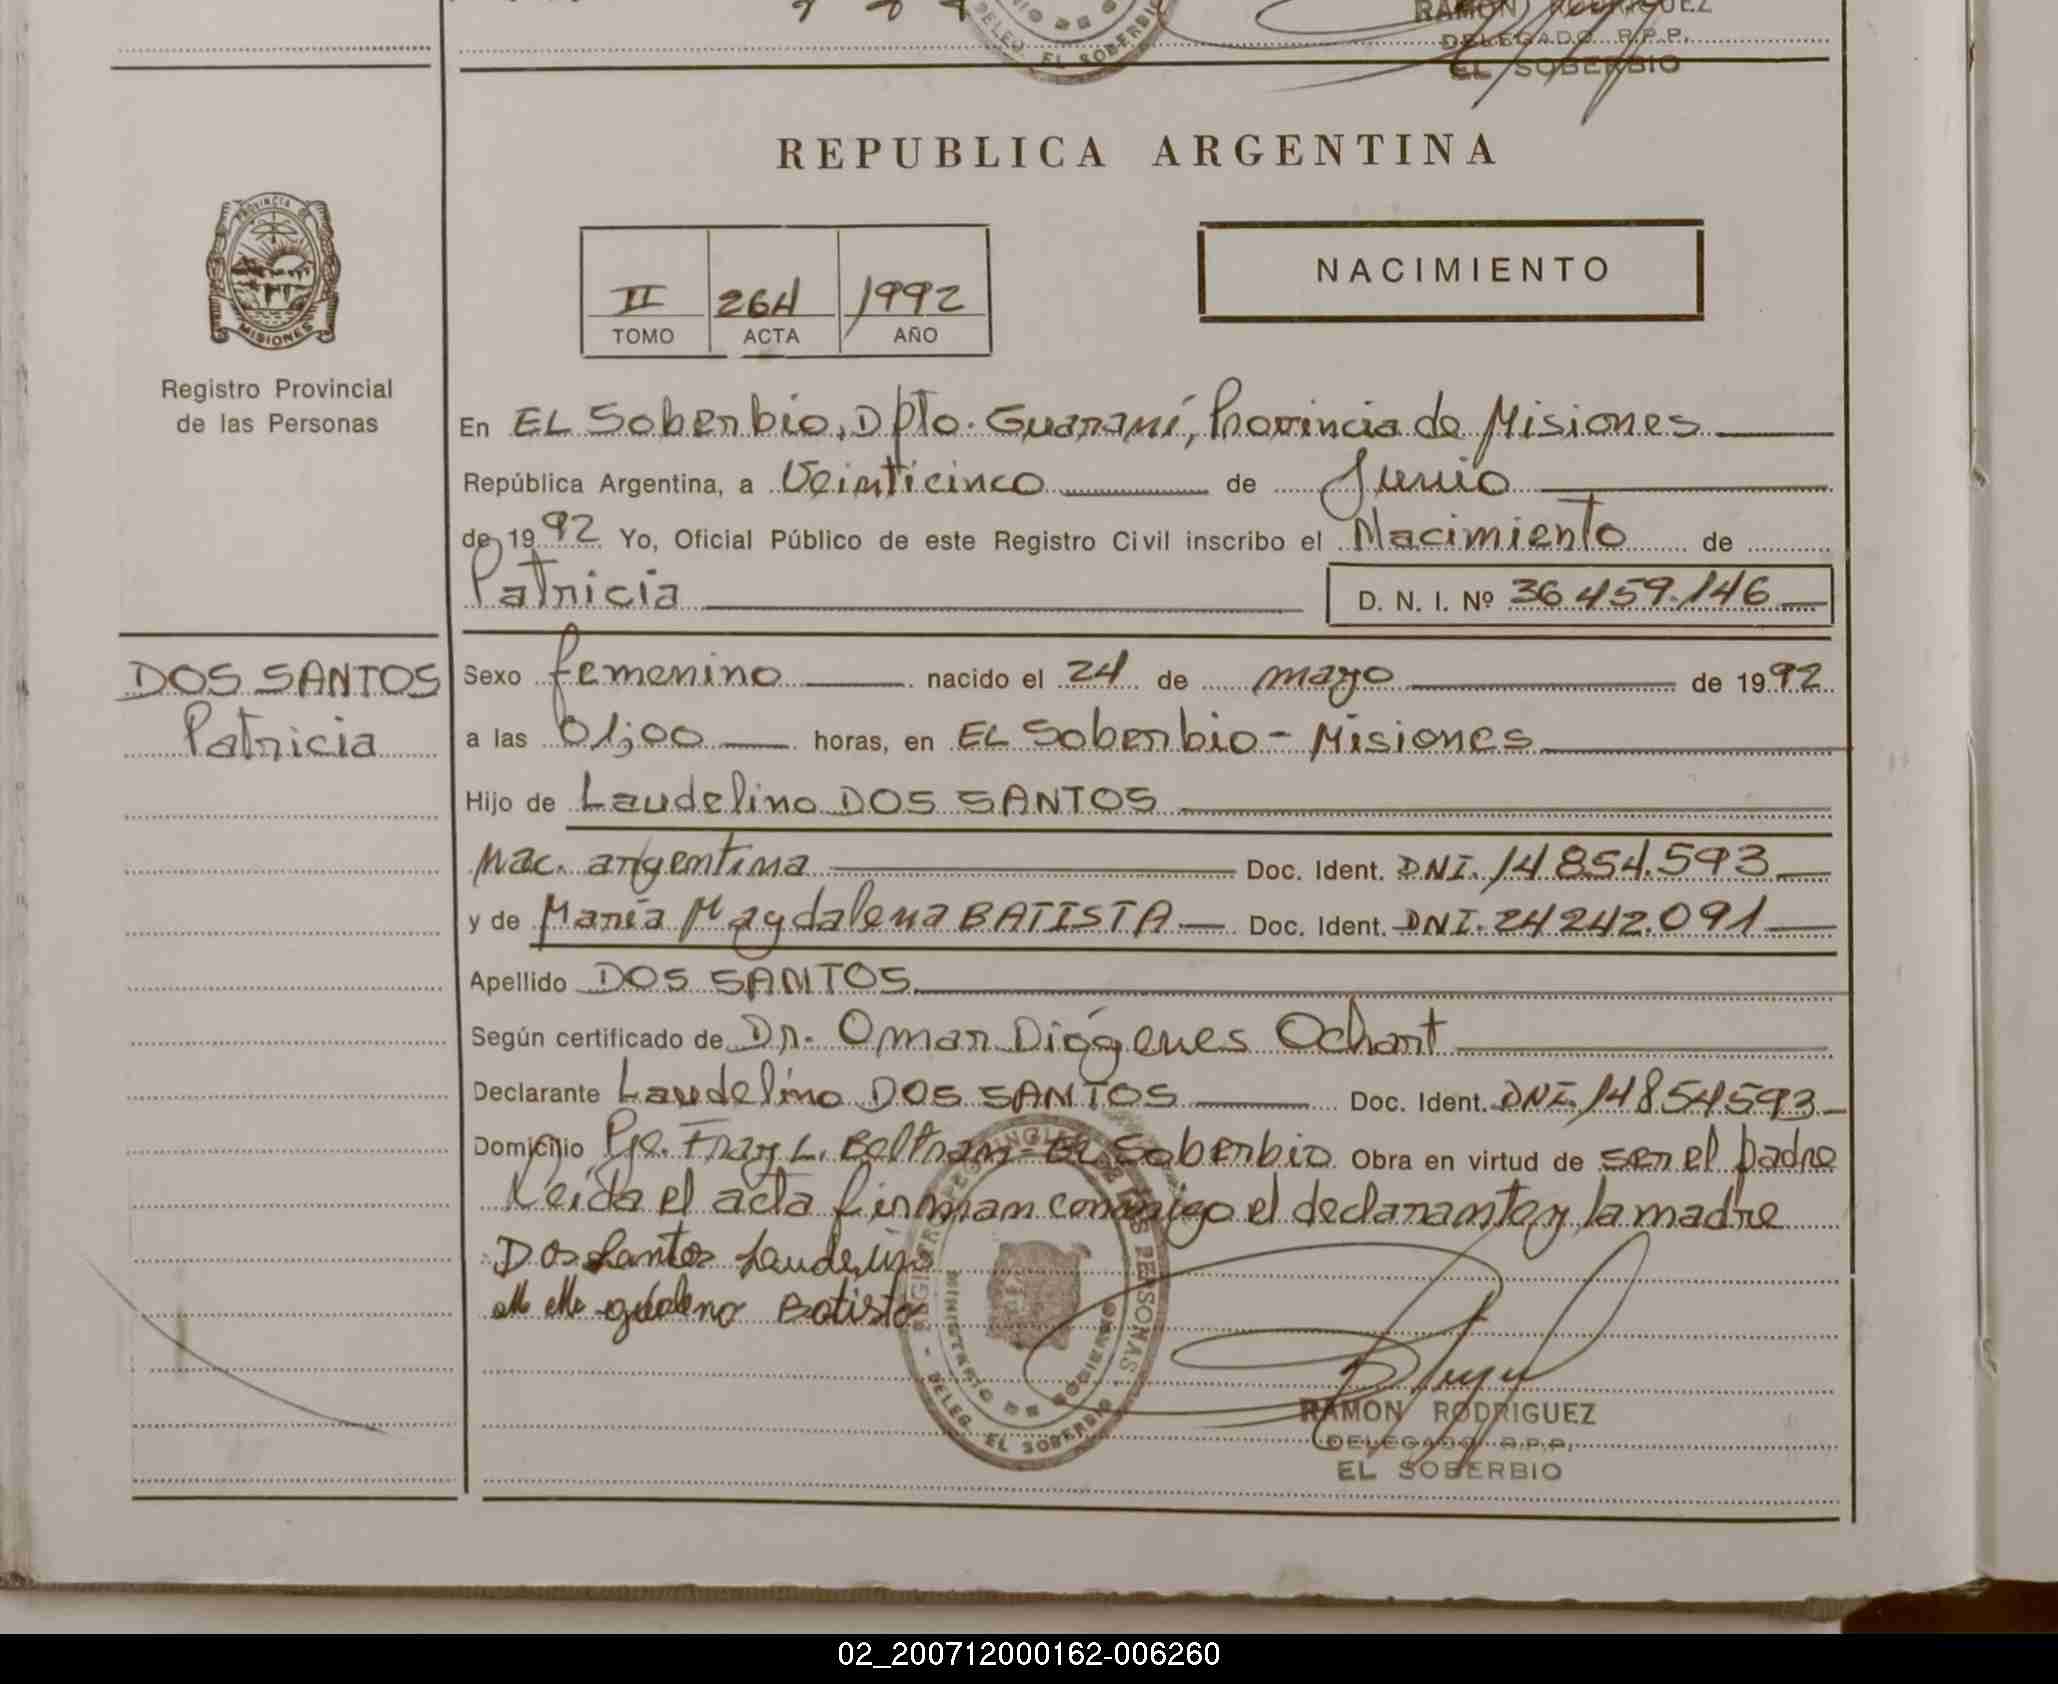 DELEG. EL SOBERBIO
RAMON RODRIGUEZ
DELEGADO R.P.P.
EL SOBERBIO
REPUBLICA ARGENTINA
PROVINCIA DE
MISIONES
Registro Provincial
de las Personas
II 264 1992
TOMO ACTA AÑO
NACIMIENTO
En EL Soberbio, Dpto. Guaraní, Provincia de Misiones
República Argentina, a Veinticinco de Junio
de 1992 Yo, Oficial Público de este Registro Civil inscribo el Nacimiento de
Patricia D. N. I. Nº 36.459.146
DOS SANTOS
Patricia
Sexo femenino nacido el 24 de mayo de 1992
a las 01,00 horas, en EL Soberbio - Misiones
Hijo de Laudelino DOS SANTOS
Nac. argentina Doc. Ident. DNI. 14.854.593
y de María Magdalena BATISTA Doc. Ident. DNI. 24.242.091
Apellido DOS SANTOS
Según certificado de Dr. Omar Diógenes Ochart
Declarante Laudelino DOS SANTOS Doc. Ident. DNI. 14854593
Domicilio Pje. Fray L. Beltram - EL Soberbio Obra en virtud de ser el padre
Leída el acta firman conmigo el declarante y la madre
Dos Santos Laudelino
M Magdalena Batista
REGISTRO PROVINCIAL DE LAS PERSONAS
MINISTERIO DE GOBIERNO
- DELEG. EL SOBERBIO -
RAMON RODRIGUEZ
DELEGADO R.P.P.
EL SOBERBIO
02_200712000162-006260